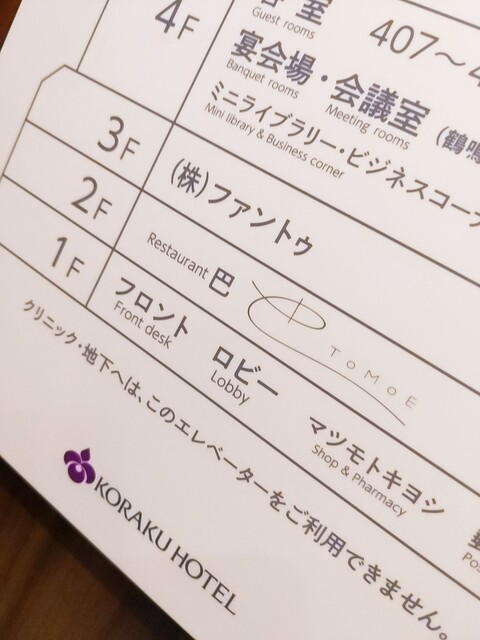 4F
室 407〜4
Guest rooms
宴会場・会議室 (鶴鳴
Banquet rooms Meeting rooms
ミニライブラリー・ビジネスコーナ
Mini library & Business corner
3F
(株)ファントゥ
2F
Restaurant 巴 TOMOE
1F
フロント ロビー マツモトキヨシ
Front desk Lobby Shop & Pharmacy
クリニック・地下へは、このエレベーターをご利用できません。
KORAKU HOTEL